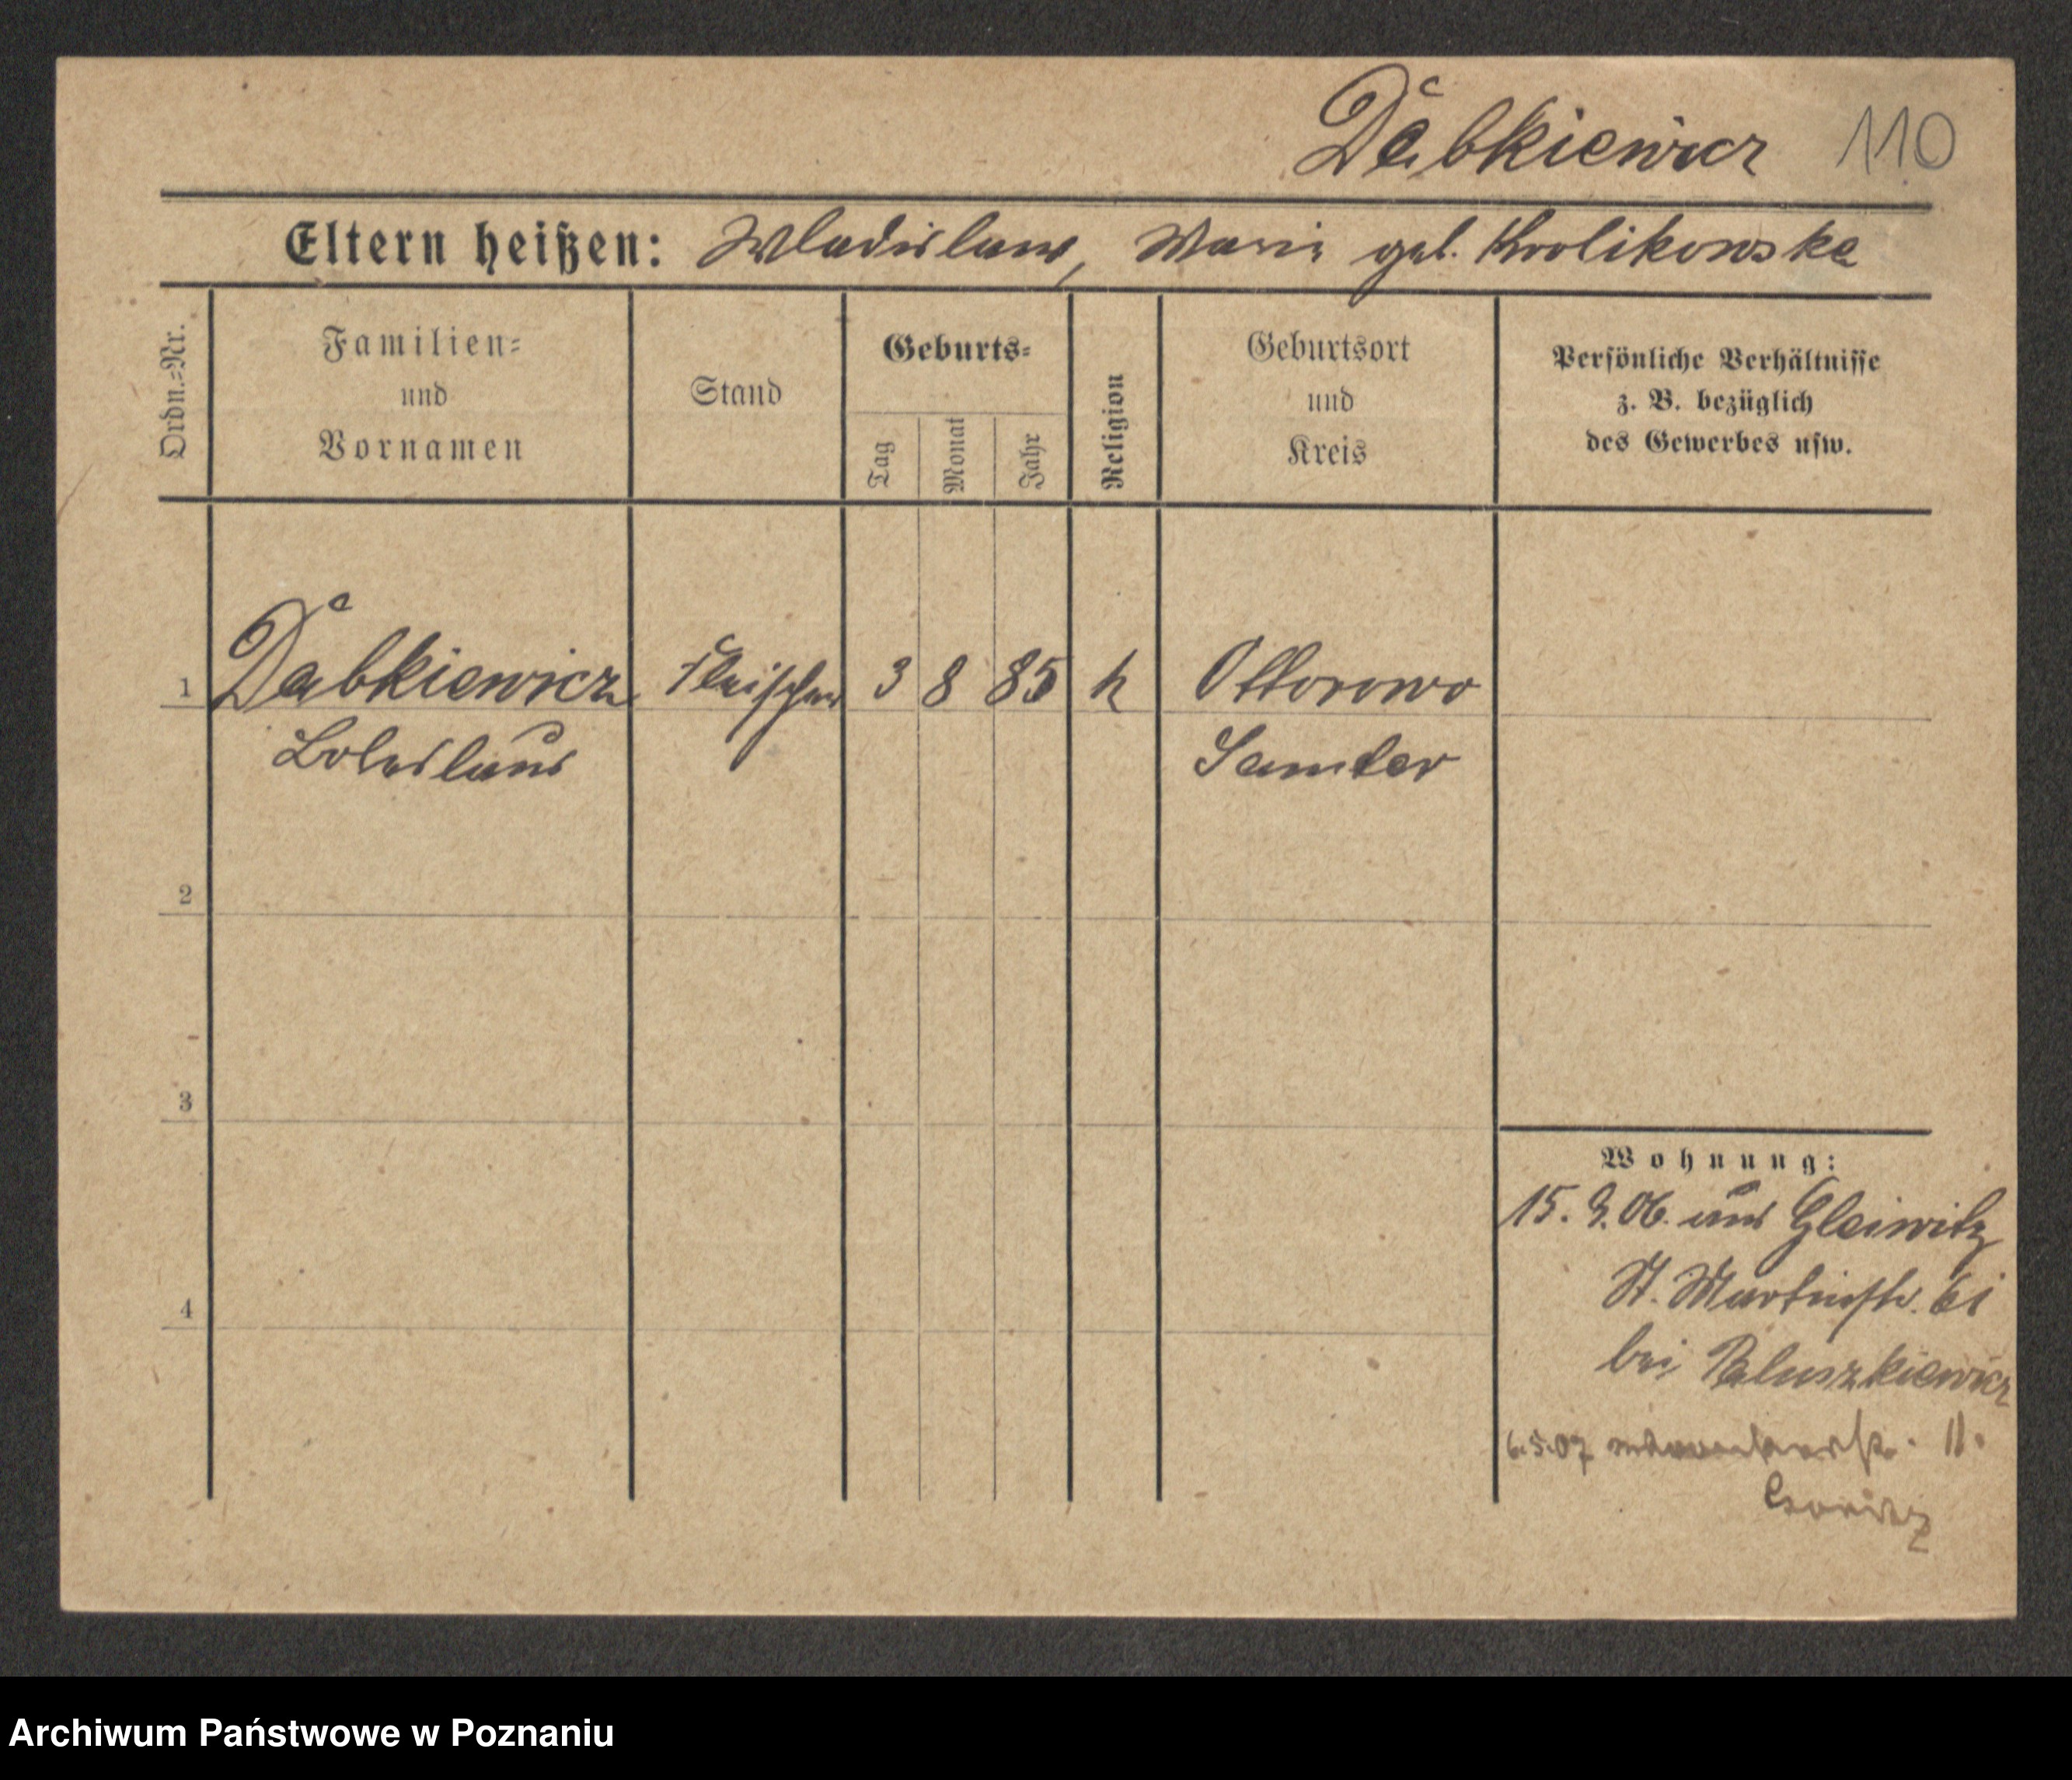 Dabkiewicz 110
Eltern heißen: Wladislaus, Marie geb. Krolikowska
Ordn.=Nr.
Familien=
und
Vornamen
Stand
Geburts=
Tag
Monat
Jahr
Religion
Geburtsort
und
Kreis
Persönliche Verhältnisse
z. B. bezüglich
des Gewerbes usw.
1 Dabkiewicz Fleischer 3 8 85 k Ottorowo
Boleslaus Samter
2
3
4
Wohnung:
15. 9. 06. aus Gleiwitz
St. Martinstr. 61
bei Paluszkiewicz
6.5.07 11.
Archiwum Państwowe w Poznaniu